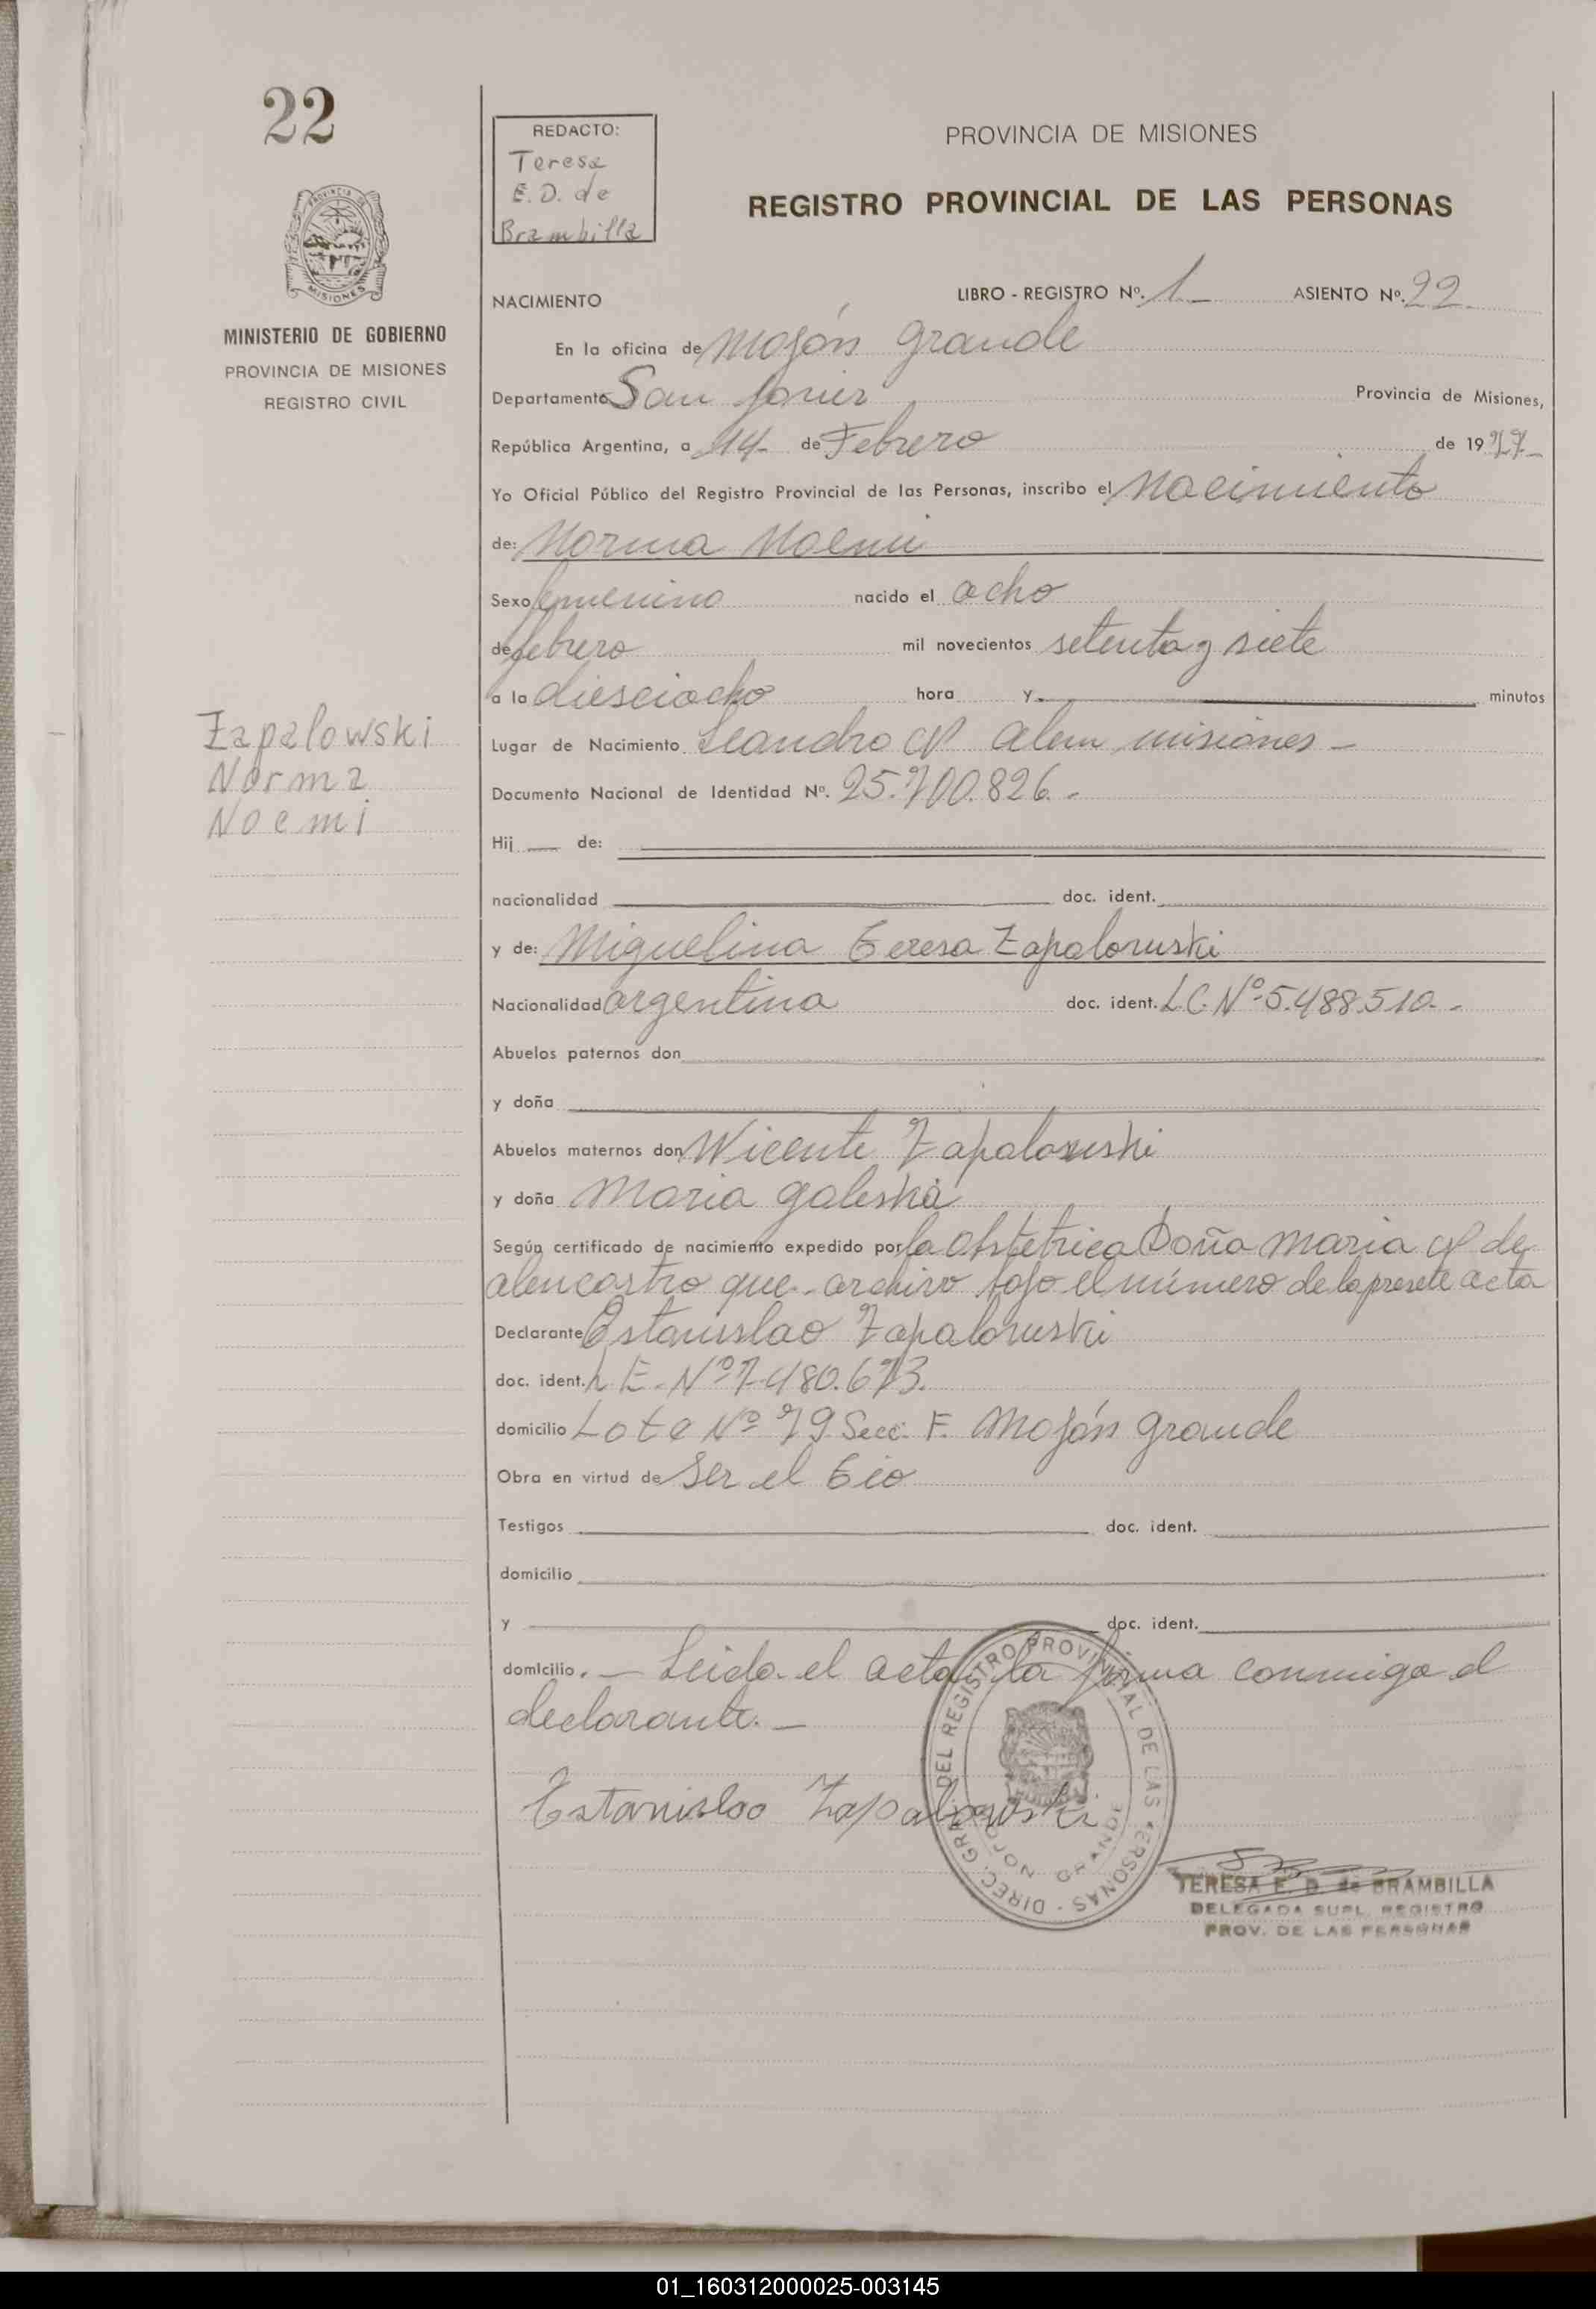 22
REDACTO:
Teresa
E. D. de
Brambilla
PROVINCIA DE MISIONES
REGISTRO PROVINCIAL DE LAS PERSONAS
PROVINCIA
MISIONES
MINISTERIO DE GOBIERNO
PROVINCIA DE MISIONES
REGISTRO CIVIL
NACIMIENTO LIBRO - REGISTRO Nº. 1 ASIENTO Nº. 22
En la oficina de Mojón Grande
Departamento San Javier Provincia de Misiones,
República Argentina, a 14 de Febrero de 1977
Yo Oficial Público del Registro Provincial de las Personas, inscribo el Nacimiento
de: Norma Noemi
Sexo femenino nacido el ocho
de febrero mil novecientos setenta y siete
a la diesciocho hora y minutos
Zapalowski
Norma
Noemi
Lugar de Nacimiento Leandro N Alem misiones -
Documento Nacional de Identidad Nº. 25.700.826.-
Hij de:
nacionalidad doc. ident.
y de: Miguelina Teresa Zapalowski
Nacionalidad argentina doc. ident. L.C. Nº 5.488.510.-
Abuelos paternos don
y doña
Abuelos maternos don Wicente Zapalowski
y doña Maria Galeska
Según certificado de nacimiento expedido por la Obstetrica Doña Maria de
alencastro que archivo bajo el número de la presete acta
Declarante Estanislao Zapalowski
doc. ident. L.E. Nº 7.480.673.
domicilio Lote Nº 79 Secc. F. Mojón Grande
Obra en virtud de Ser el tio
Testigos doc. ident.
domicilio
y doc. ident.
domicilio. - Leida el acta la firma conmigo el
declarante. -
Estanislao Zapalowski
DIREC. GRAL. DEL REGISTRO PROVINCIAL DE LAS PERSONAS -
MOJON GRANDE
TERESA E. D. de BRAMBILLA
DELEGADA SUPL. REGISTRO
PROV. DE LAS PERSONAS
01_160312000025-003145